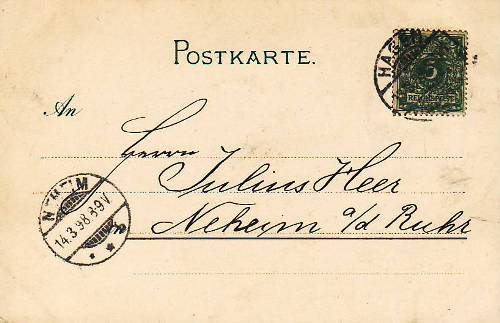 POSTKARTE.
HAGEN
5
REICHSPOST
An
Herrn Julius Heer
in Neheim a/d Ruhr
NEHEIM
14.3.98.8-9V.